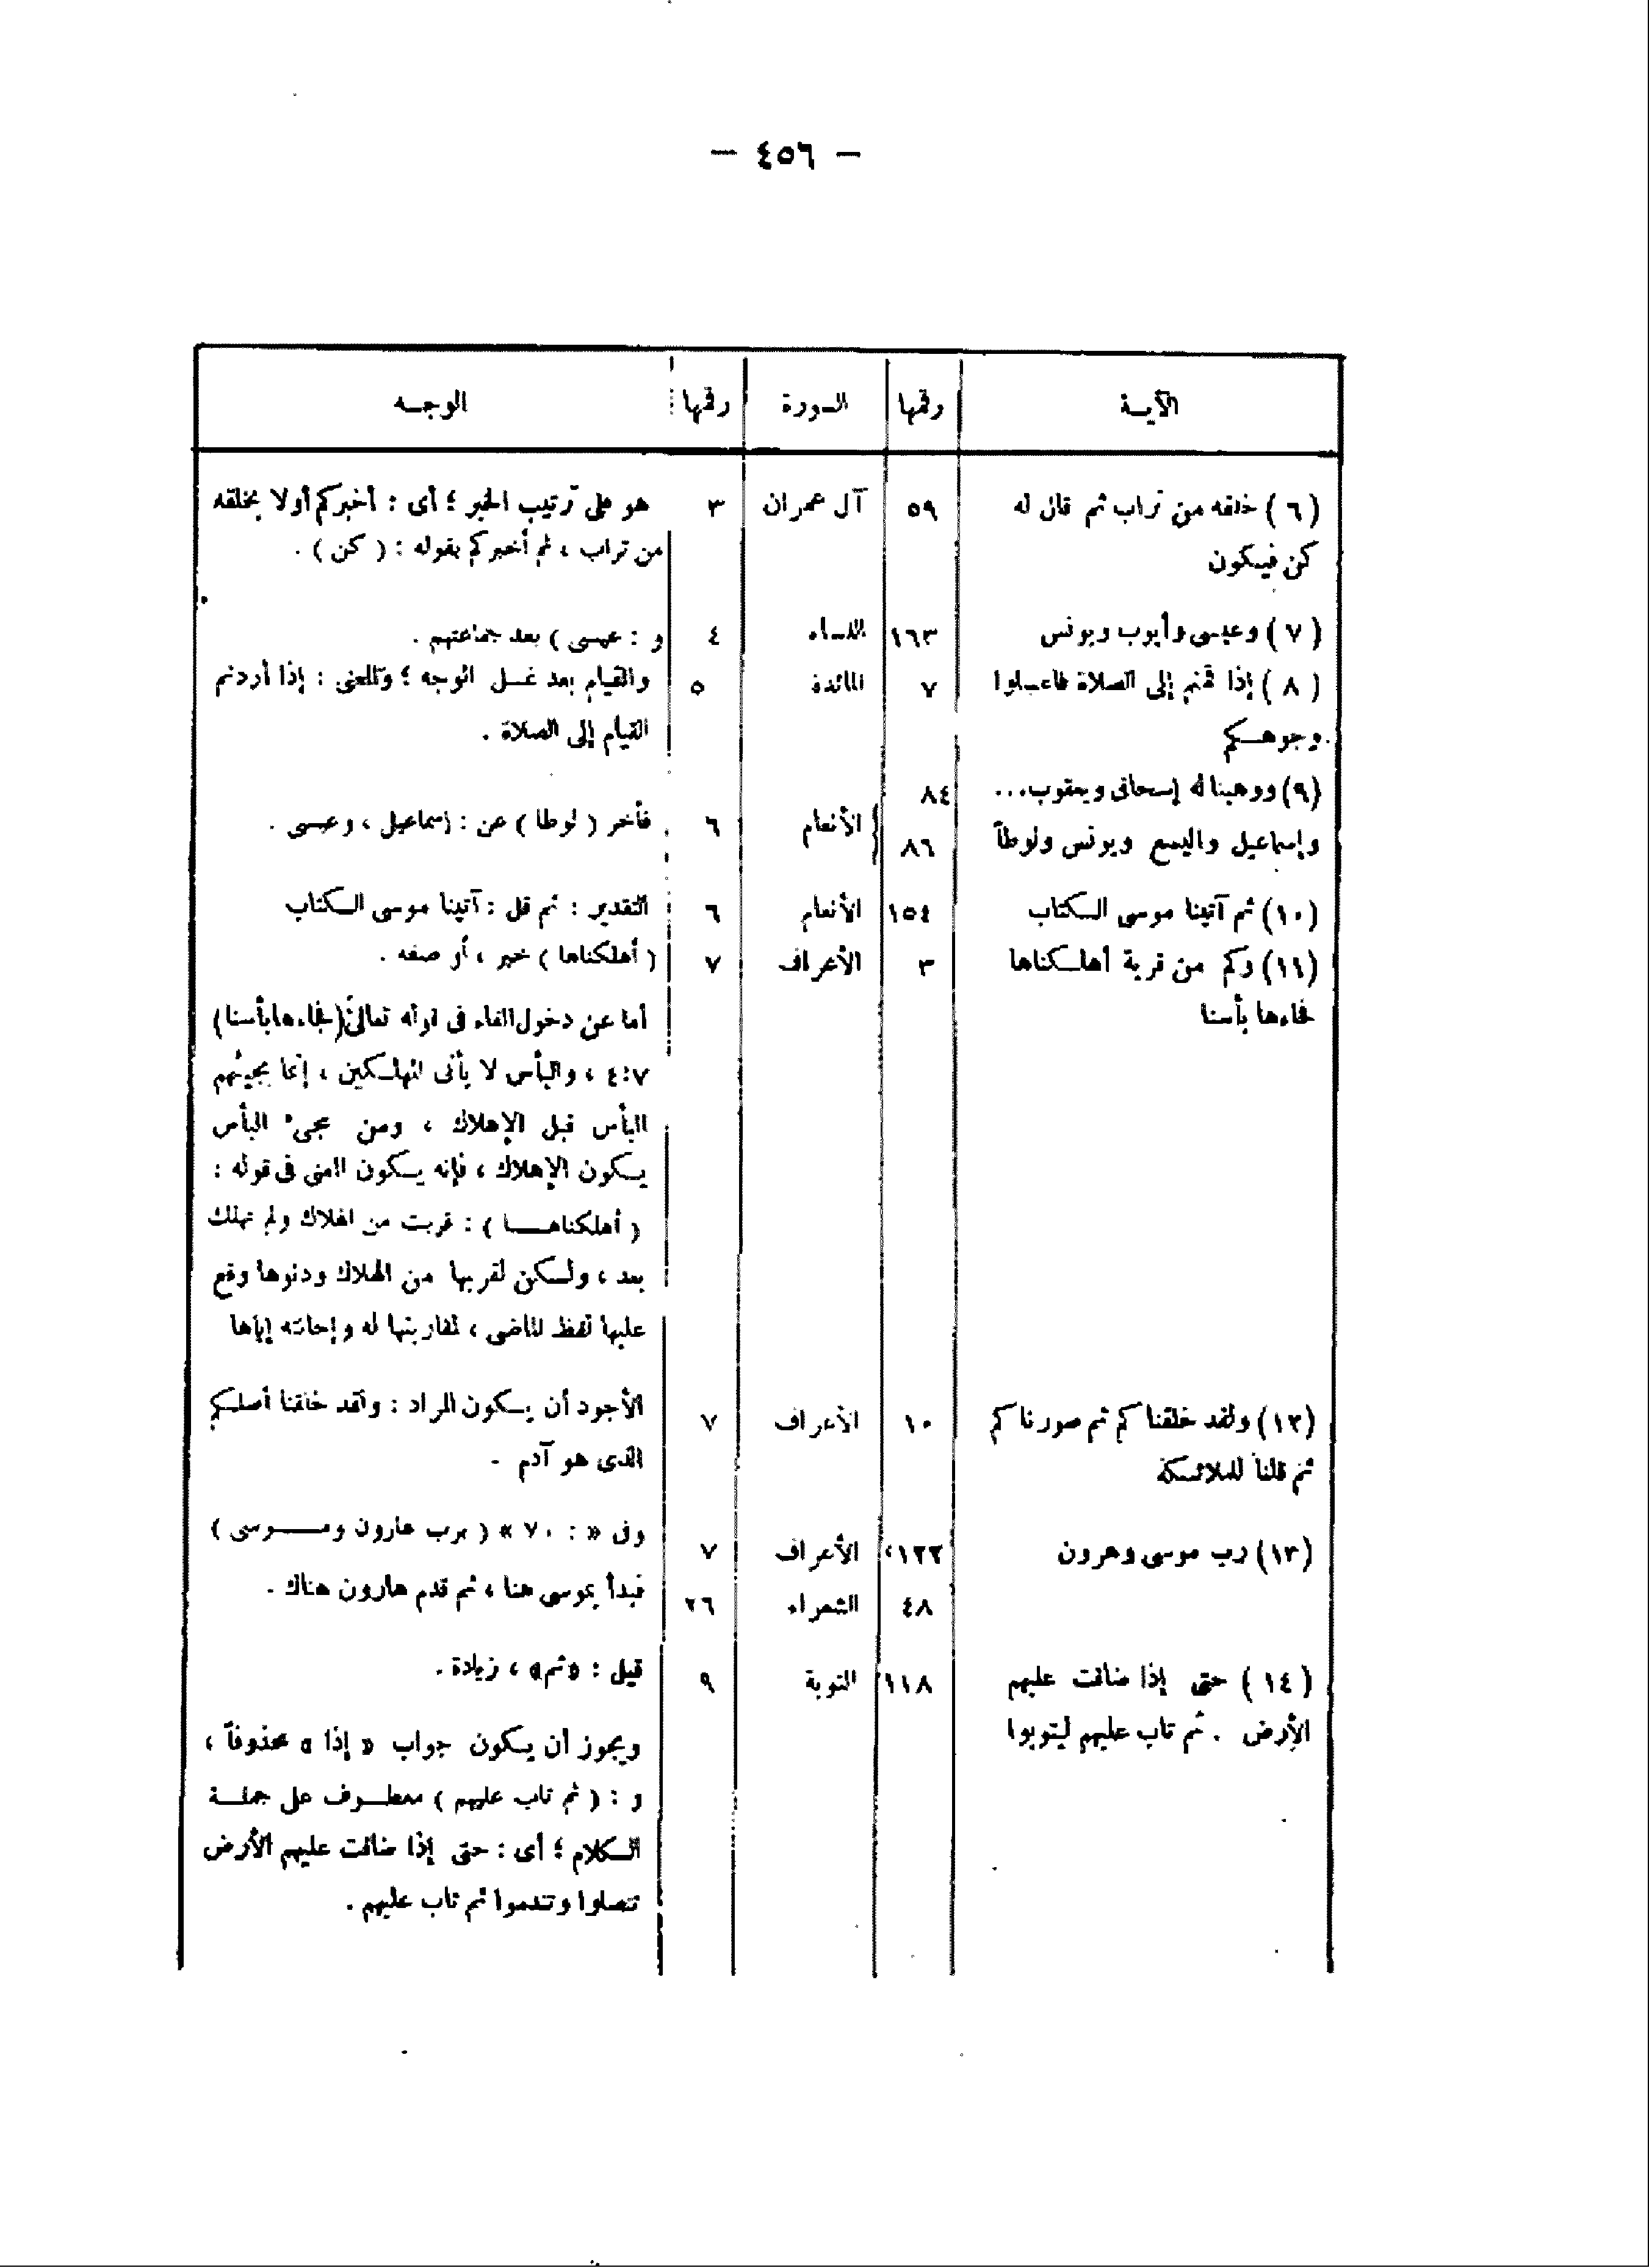 — ٤٥٦ —
الآيـة رقمها السورة رقمها الوجـه
(٦) خلقه من تراب ثم قال له ٥٩ آل عمران ٣ هو على ترتيب الخبر ؛ أى : أخبركم أولا بخلقه
كن فيكون من تراب ، ثم أخبركم بقوله : ( كن ) .
(٧) وعيسى وأيوب ويونس ١٦٣ النساء ٤ و : عيسى ) بعد جماعتهم .
(٨) إذا قمتم إلى الصلاة فاغسلوا ٧ المائدة ٥ والقيام بعد غسل الوجه ؛ والمعنى : إذا أردتم
وجوهكم القيام إلى الصلاة .
(٩) ووهبنا له إسحاق ويعقوب... ٨٤
وإسماعيل واليسع ويونس ولوطاً ٨٦ الأنعام ٦ فأخر ( لوطا ) عن : إسماعيل ، وعيسى .
(١٠) ثم آتينا موسى الكتاب ١٥٤ الأنعام ٦ التقدير : ثم قل : آتينا موسى الكتاب
(١١) وكم من قرية أهلكناها ٣ الأعراف ٧ ( أهلكناها ) خبر ، أو صفه .
فجاءها بأسنا أما عن دخول الفاء فى قوله تعالى (فجاءها بأسنا)
٤:٧ ، والبأس لا يأتى المهلكين ، إنما يجيئهم
البأس قبل الإهلاك ، ومن مجىء البأس
يكون الإهلاك ، فإنه يكون المعنى فى قوله :
( أهلكناهـا ) : قربت من الهلاك ولم تهلك
بعد ، ولكن لقربها من الهلاك ودنوها وقع
عليها لفظ الماضى ، لمقاربتها له وإحاطته إياها
(١٢) ولقد خلقناكم ثم صورناكم ١٠ الأعراف ٧ الأجود أن يكون المراد : ولقد خلقنا أصلكم
ثم قلنا للملائكة الذى هو آدم .
(١٣) رب موسى وهرون ١٢٢، الأعراف ٧ وفى « : ٧٠ » ( برب هارون ومـوسى )
٤٨ الشعراء ٢٦ فبدأ بموسى هنا ، ثم قدم هارون هناك .
(١٤) حتى إذا ضاقت عليهم ١١٨ التوبة ٩ قيل : «ثم» ، زيادة .
الأرض . ثم تاب عليهم ليتوبوا ويجوز أن يكون جواب « إذا » محذوفاً ،
و : ( ثم تاب عليهم ) معطوف على جملـة
الكلام ؛ أى : حتى إذا ضاقت عليهم الأرض
تنصلوا وتندموا ثم تاب عليهم .